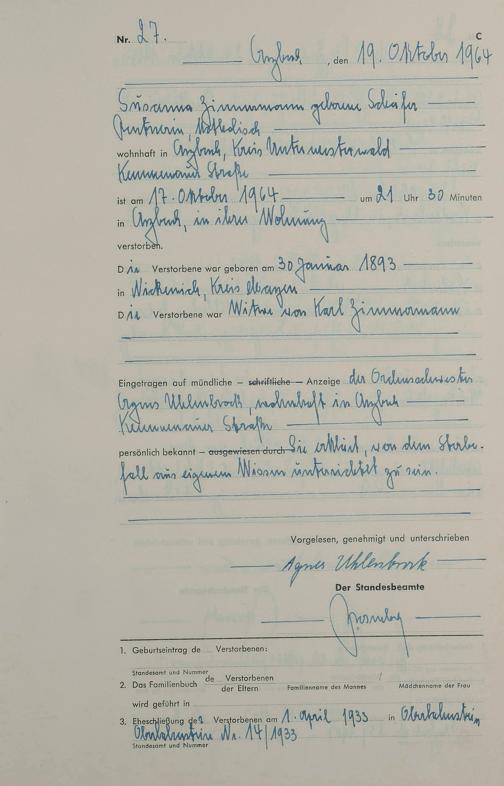 Nr. 27. C
Arzbach, den 19. Oktober 1964
Susanna Zimmermann geborene Schäfer
Rentnerin, katholisch
wohnhaft in Arzbach, Kreis Unterwesterwald
Kemmenauer Straße
ist am 17. Oktober 1964 um 21 Uhr 30 Minuten
in Arzbach, in ihrer Wohnung
verstorben.
Die Verstorbene war geboren am 30 Januar 1893
in Nickenich, Kreis Mayen
Die Verstorbene war Witwe von Karl Zimmermann
Eingetragen auf mündliche – schriftliche – Anzeige der Ordensschwester
Agnes Uhlenbrock, wohnhaft in Arzbach
Kemmenauer Straße
persönlich bekannt – ausgewiesen durch Sie erklärt, von dem Sterbe-
fall aus eigenem Wissen unterrichtet zu sein.
Vorgelesen, genehmigt und unterschrieben
Agnes Uhlenbrock
Der Standesbeamte
1. Geburtseintrag de Verstorbenen:
Standesamt und Nummer
2. Das Familienbuch de Verstorbenen
der Eltern Familienname des Mannes Mädchenname der Frau
wird geführt in
3. Eheschließung des Verstorbenen am 1. April 1933 in Oberlahnstein
Oberlahnstein Nr. 14/1933
Standesamt und Nummer